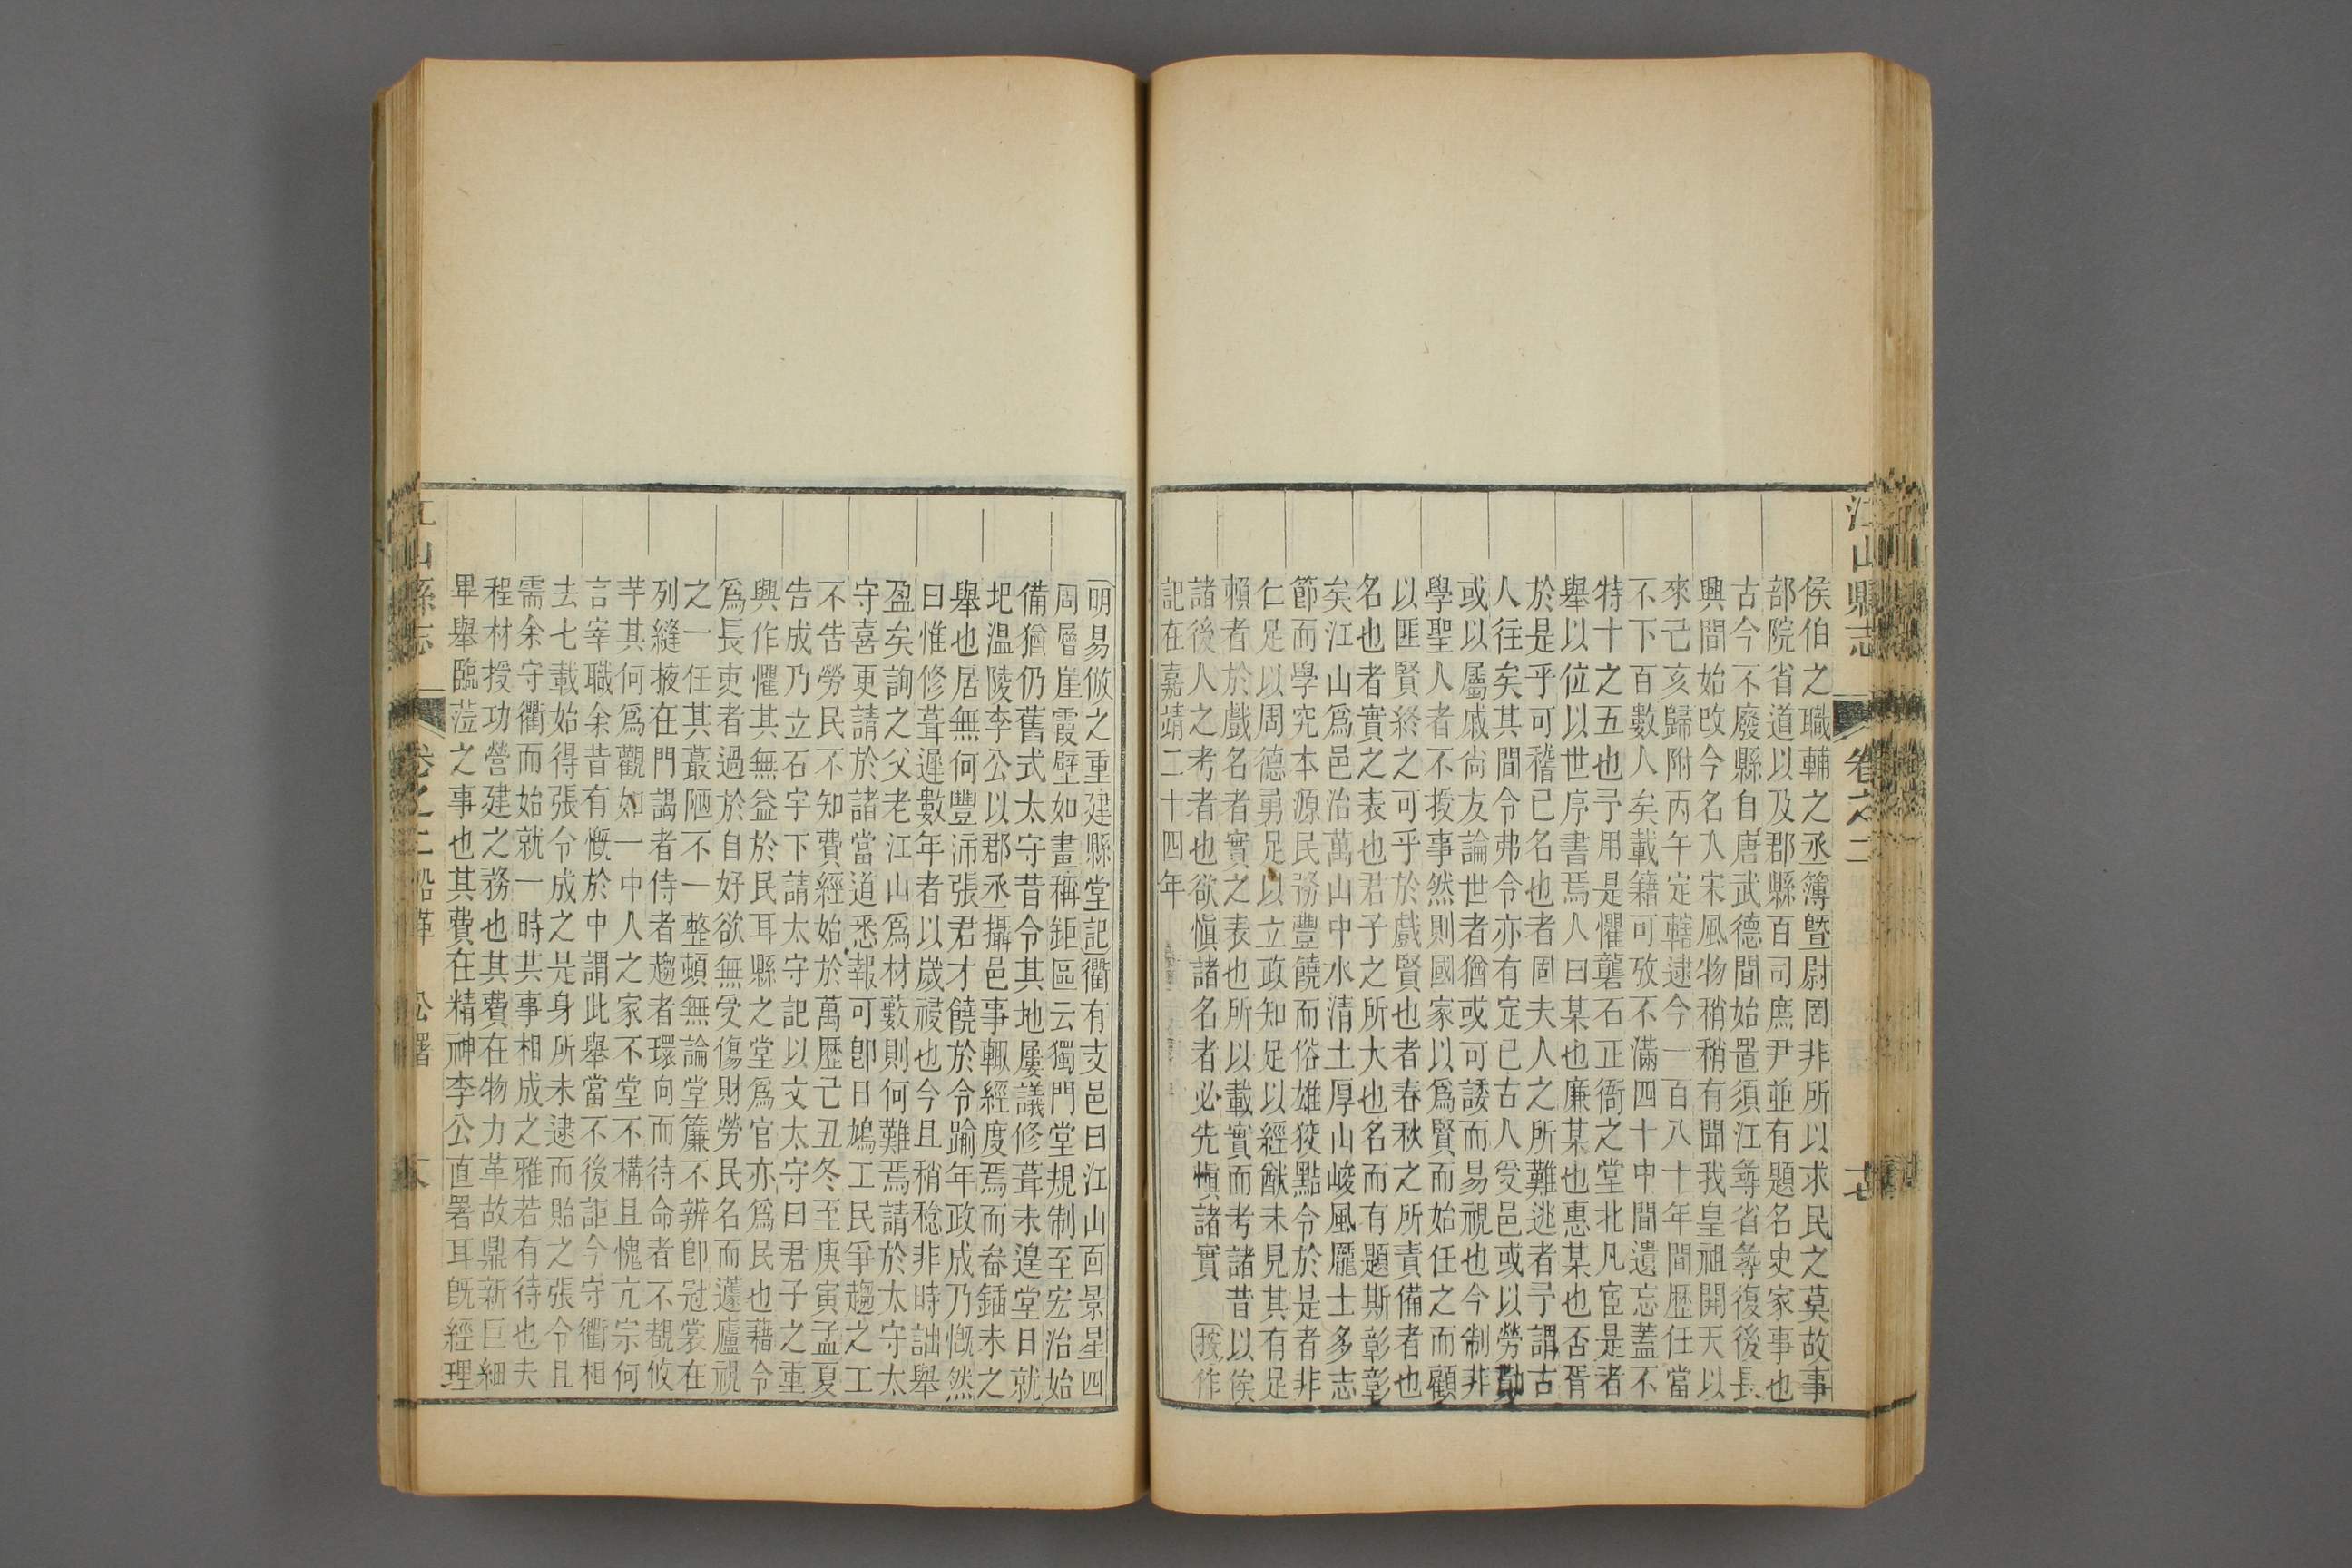 江山縣志
卷之二
十七
侯伯之職輔之丞簿曁尉罔非所以求民之莫故事
部院省道以及郡縣百司庶尹並有題名史家事也
古今不廢縣自唐武德間始置須江尊省尊復後長
興間始改今名入宋風物稍稍有聞我皇祖開天以
來己亥歸附丙午定轄逮今一百八十年間歷任當
不下百數人矣載籍可攷不滿四十中間遺忘蓋不
特十之五也予用是懼礱石正衙之堂北凡宦是者
舉以位以世序書焉人曰某也廉某也惠某也否胥
於是乎可稽已名也者固夫人之所難逃者予謂古
人往矣其間令弗令亦有定已古人受邑或以勞勩
或以屬戚尚友論世者猶或可諉而易視也今制非
學聖人者不授事然則國家以爲賢而始任之而顧
以匪賢終之可乎於戲賢也者春秋之所責備者也
名也者實之表也君子之所大也名而有題斯彰彰
矣江山爲邑治萬山中水清土厚山峻風龎土多志
節而學究本源民務豐饒而俗雄狡黠令於是者非
仁足以周德勇足以立政知足以經猷未見其有足
賴者於戲名者實之表也所以載實而考諸昔以俟
諸後人之考者也欲愼諸名者必先愼諸實 按作
記在嘉靖二十四年
明易倣之重建縣堂記衢有支邑曰江山面景星四
周層崖霞壁如畫稱鉅區云獨門堂規制至宏治始
備猶仍舊式太守昔令其地屢議修葺未遑堂日就
圯温陵李公以郡丞攝邑事輒經度焉而畚鍤未之
舉也居無何豐沛張君才饒於令踰年政成乃慨然
曰惟修葺遲數年者以歲祲也今且稍稔非時詘舉
盈矣詢之父老江山爲材藪則何難焉請於太守太
守喜更請於諸當道悉報可卽日鳩工民爭趨之工
不告勞民不知費經始於萬歷己丑冬至庚寅孟夏
告成乃立石宇下請太守記以文太守曰君子之重
興作懼其無益於民耳縣之堂爲官亦爲民也藉令
爲長吏者過於自好欲無受傷財勞民名而蘧廬視
之一任其蕞陋不一整頓無論堂簾不辨卽冠裳在
列縫掖在門謁者侍者趨者環向而待命者不覩攸
芋其何爲觀如一中人之家不堂不構且愧亢宗何
言宰職余昔有慨於中謂此舉當不後詎今守衢相
去七載始得張令成之是身所未逮而貽之張令且
需余守衢而始就一時其事相成之雅若有待也夫
程材授功營建之務也其費在物力革故鼎新巨細
畢舉臨蒞之事也其費在精神李公直署耳旣經理
江山縣志
卷之二 沿革 公署